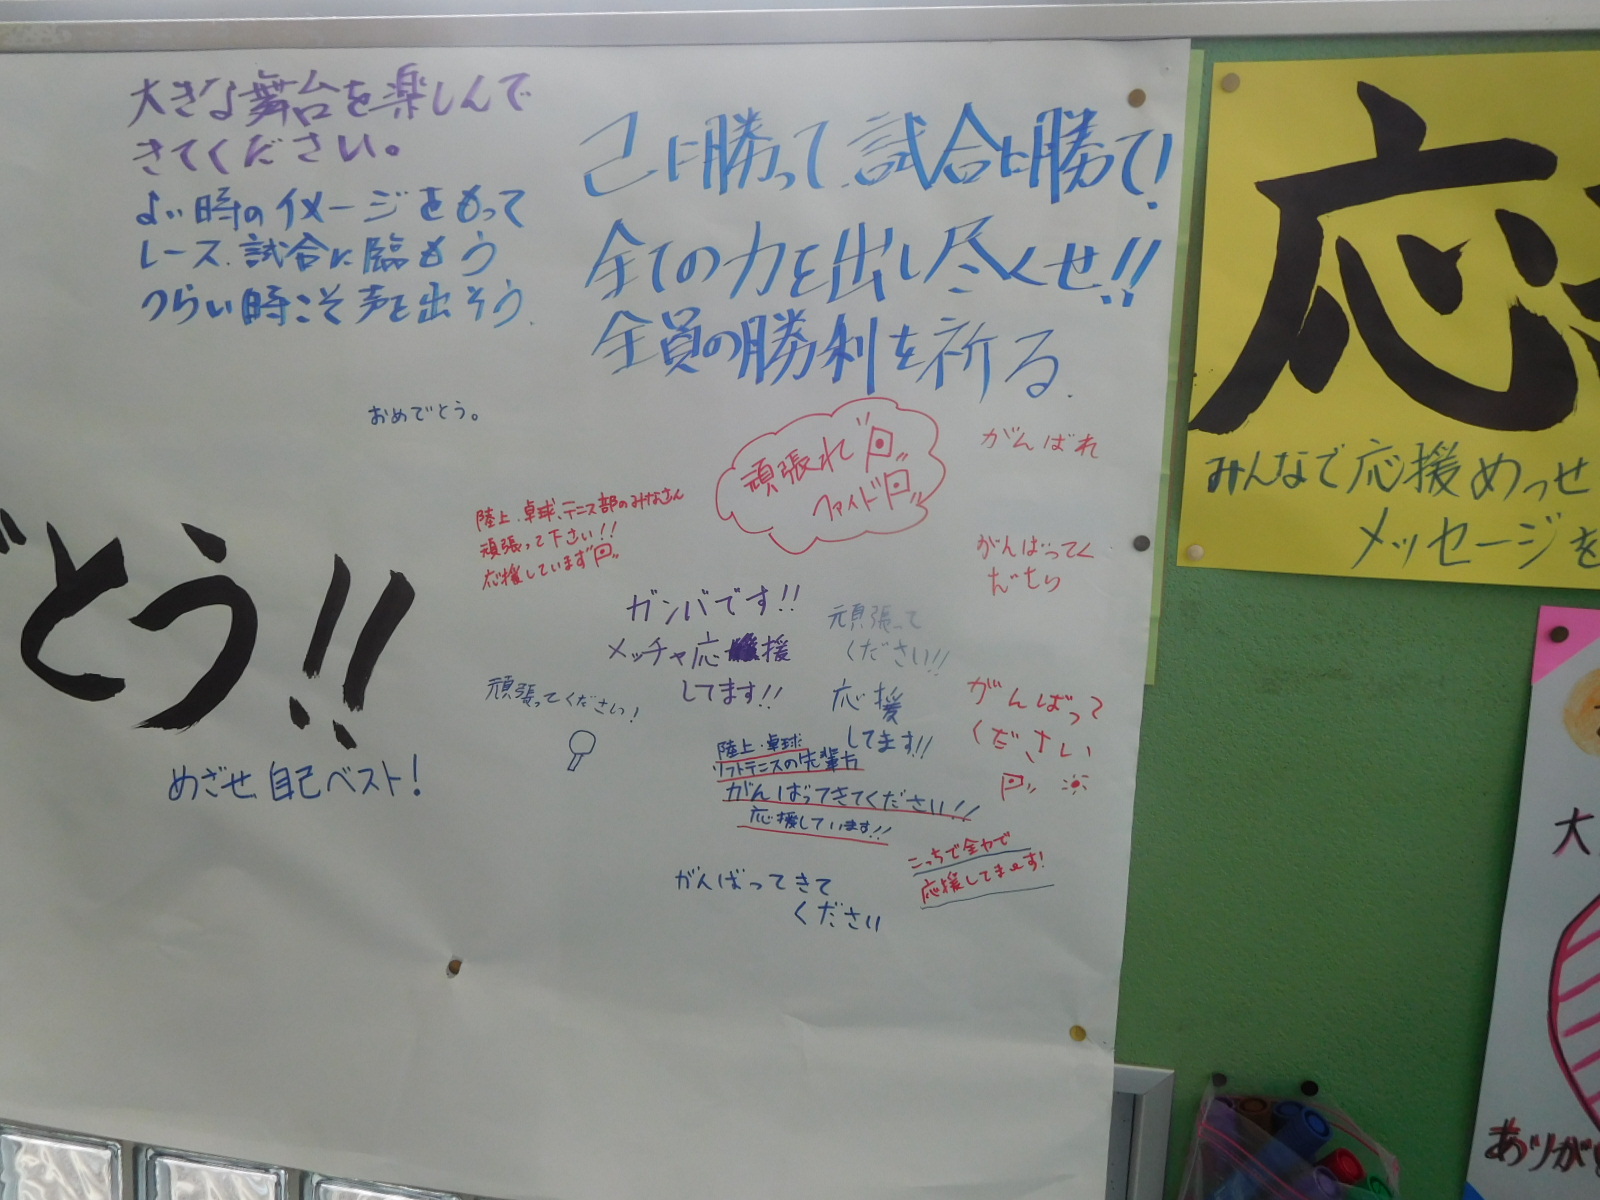 大きな舞台を楽しんで
きてください。
よい時のイメージをもって
レース、試合に臨もう
つらい時こそ声を出そう。
己に勝って、試合に勝て！
全ての力を出し尽くせ！！
全員の勝利を祈る。
おめでとう。
頑張れ
ファイト
がんばれ
陸上、卓球、テニス部のみなさん
頑張って下さい！！
応援しています
がんばってく
ガンバです！！
メッチャ応援
してます！！
頑張って
ください！！
応援
してます！！
頑張ってください！
がんばって
ください
陸上・卓球
ソフトテニスの先輩方
がんばってきてください！！
応援しています！！
こっちで全力で
応援してまーす！
がんばってきて
ください
とう！！
めざせ自己ベスト！
応
みんなで応援めっせ
メッセージを
大
ありが